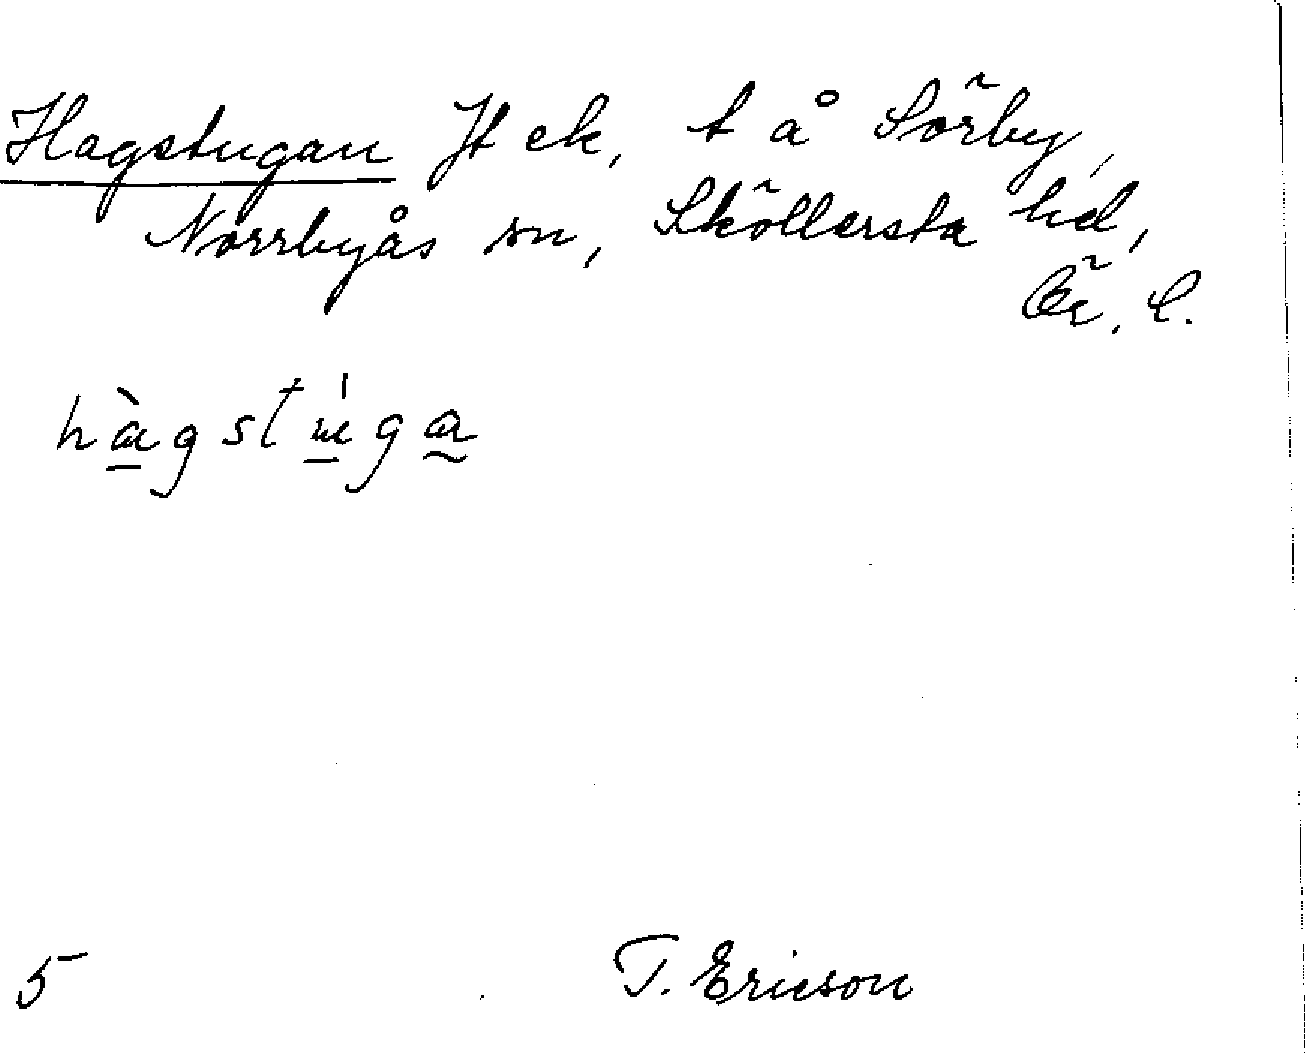 Hagstugan Jt ek, t å Sörby,
Norrbyås sn, Sköllersta hd,
Ör. l.
hàgstúga
5
T. Ericson